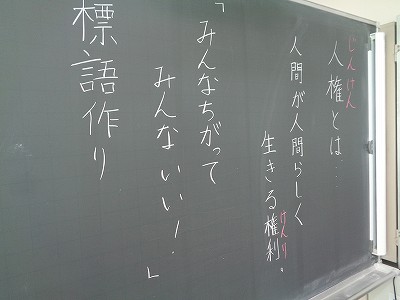 じんけん
人権とは…
人間が人間らしく
生きる権利。
けんり
「みんなちがって
みんないい！」
標語作り